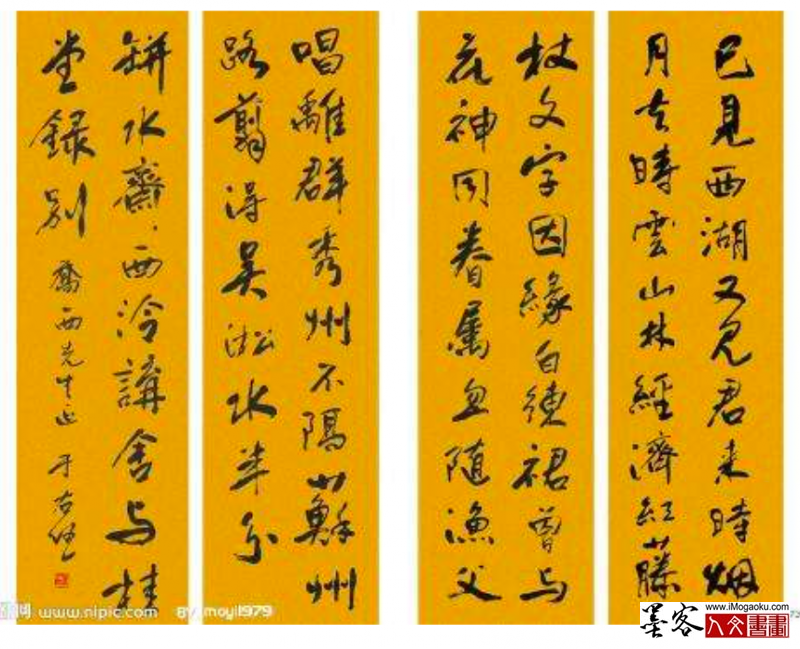 已見西湖又見君来時烟
月去時雲山林經濟紅藤
杖文字因緣白練裙曾与
花神同眷屬忽随漁父
唱離群秀州不隔蘇州
路翦得吴淞水半分
缾水齋西泠講舍与桂
堂録别
西先生正 于右任
www.nipic.com BY moyi1979
墨客
www.iMogaoku.com
人文書畫